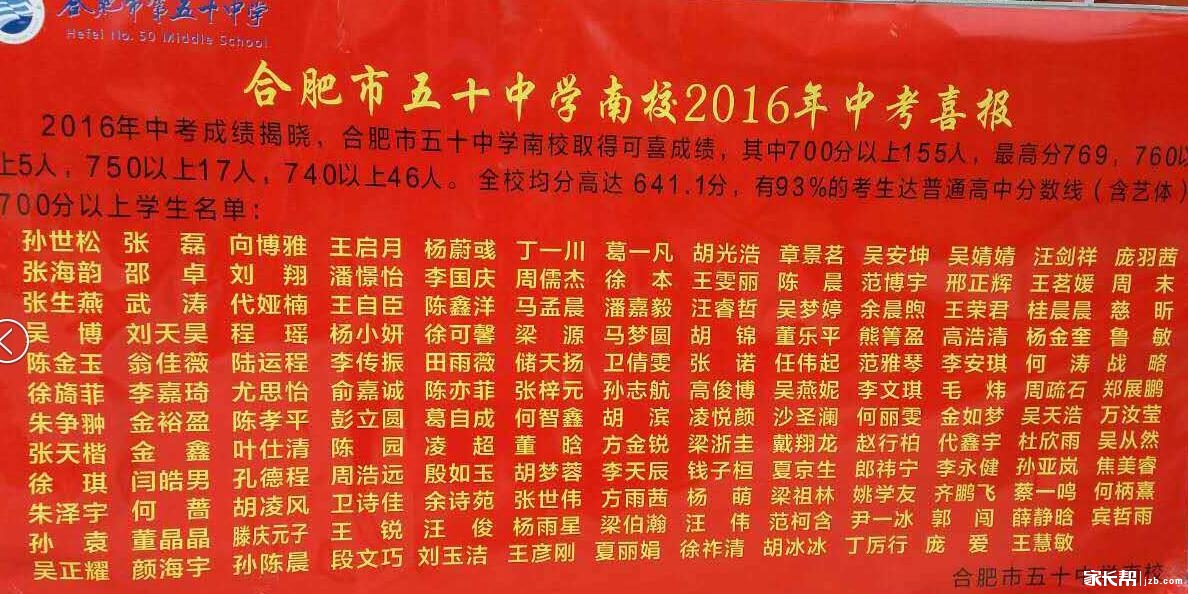 合肥市第五十中学
Hefei No. 50 Middle School
合肥市五十中学南校2016年中考喜报
2016年中考成绩揭晓，合肥市五十中学南校取得可喜成绩，其中700分以上155人，最高分769，760以
上5人，750以上17人，740以上46人。全校均分高达 641.1分，有93%的考生达普通高中分数线（含艺体）
700分以上学生名单：
孙世松 张 磊 向博雅 王启月 杨蔚彧 丁一川 葛一凡 胡光浩 章景茗 吴安坤 吴婧婧 汪剑祥 庞羽茜
张海韵 邵 卓 刘 翔 潘憬怡 李国庆 周儒杰 徐 本 王雯丽 陈 晨 范博宇 邢正辉 王茗媛 周 末
张生燕 武 涛 代娅楠 王自臣 陈鑫洋 马孟晨 潘嘉毅 汪睿哲 吴梦婷 余晨煦 王荣君 桂晨晨 慈 昕
吴 博 刘天昊 程 瑶 杨小妍 徐可馨 梁 源 马梦圆 胡 锦 董乐平 熊箐盈 高浩清 杨金奎 鲁 敏
陈金玉 翁佳薇 陆运程 李传振 田雨薇 储天扬 卫倩雯 张 诺 任伟起 范雅琴 李安琪 何 涛 战 略
徐旖菲 李嘉琦 尤思怡 俞嘉诚 陈亦菲 张梓元 孙志航 高俊博 吴燕妮 李文琪 毛 炜 周疏石 郑展鹏
朱争翀 金裕盈 陈孝平 彭立圆 葛自成 何智鑫 胡 滨 凌悦颜 沙圣澜 何丽雯 金如梦 吴天浩 万汝莹
张天楷 金 鑫 叶仕清 陈 园 凌 超 董 晗 方金锐 梁浙圭 戴翔龙 赵行柏 代鑫宇 杜欣雨 吴从然
徐 琪 闫皓男 孔德程 周浩远 殷如玉 胡梦蓉 李天辰 钱子桓 夏京生 郎祎宁 李永健 孙亚岚 焦美睿
朱泽宇 何 蔷 胡凌风 卫诗佳 余诗苑 张世伟 方雨茜 杨 萌 梁祖林 姚学友 齐鹏飞 蔡一鸣 何柄熹
孙 袁 董晶晶 滕庆元子 王 锐 汪 俊 杨雨星 梁伯瀚 汪 伟 范柯含 尹一冰 郭 闯 薛静晗 宾哲雨
吴正耀 颜海宇 孙陈晨 段文巧 刘玉洁 王彦刚 夏丽娟 徐祚清 胡冰冰 丁厉行 庞 爱 王慧敏
合肥市五十中学南校
家长帮 jzb.com